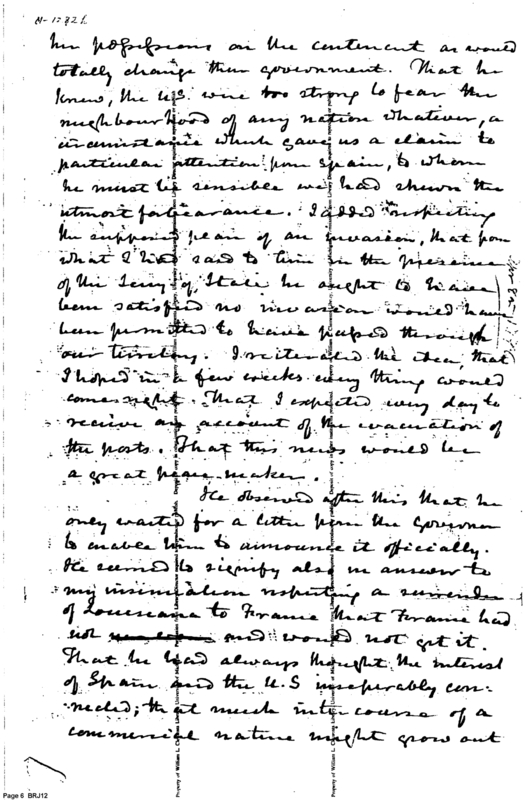 her possessions on the contenent as would
totally change their government. That he
knew, the U.S. were too strong to fear the
neighbourhood of any nation whatever, a
circumstance which gave us a claim to
particular attention from Spain, to whom
he must be sensible we had shewn the
utmost forbearance. I added respecting
the supposed plan of an invasion, that from
what I had said to him in the presence
of the Secry of State he ought to have
been satisfied no invasion would have
been permitted to have passed through
our territory. I reiterated the idea, that
I hoped in a few weeks every thing would
come right. That I expected every day to
receive an account of the evacuation of
the posts. That this news would be
a great peace-maker.
He observed after this that he
only waited for a letter from the Governor
to enable him to announce it officially.
He seemed to signify also in answer to
my insinuation respecting a surrender
of Louisiana to France that France had
not and would not get it.
That he had always thought the interest
of Spain and the U.S inseperably con-
nected; that much intercourse of a
commercial nature might grow out
Page 6 BRJ12